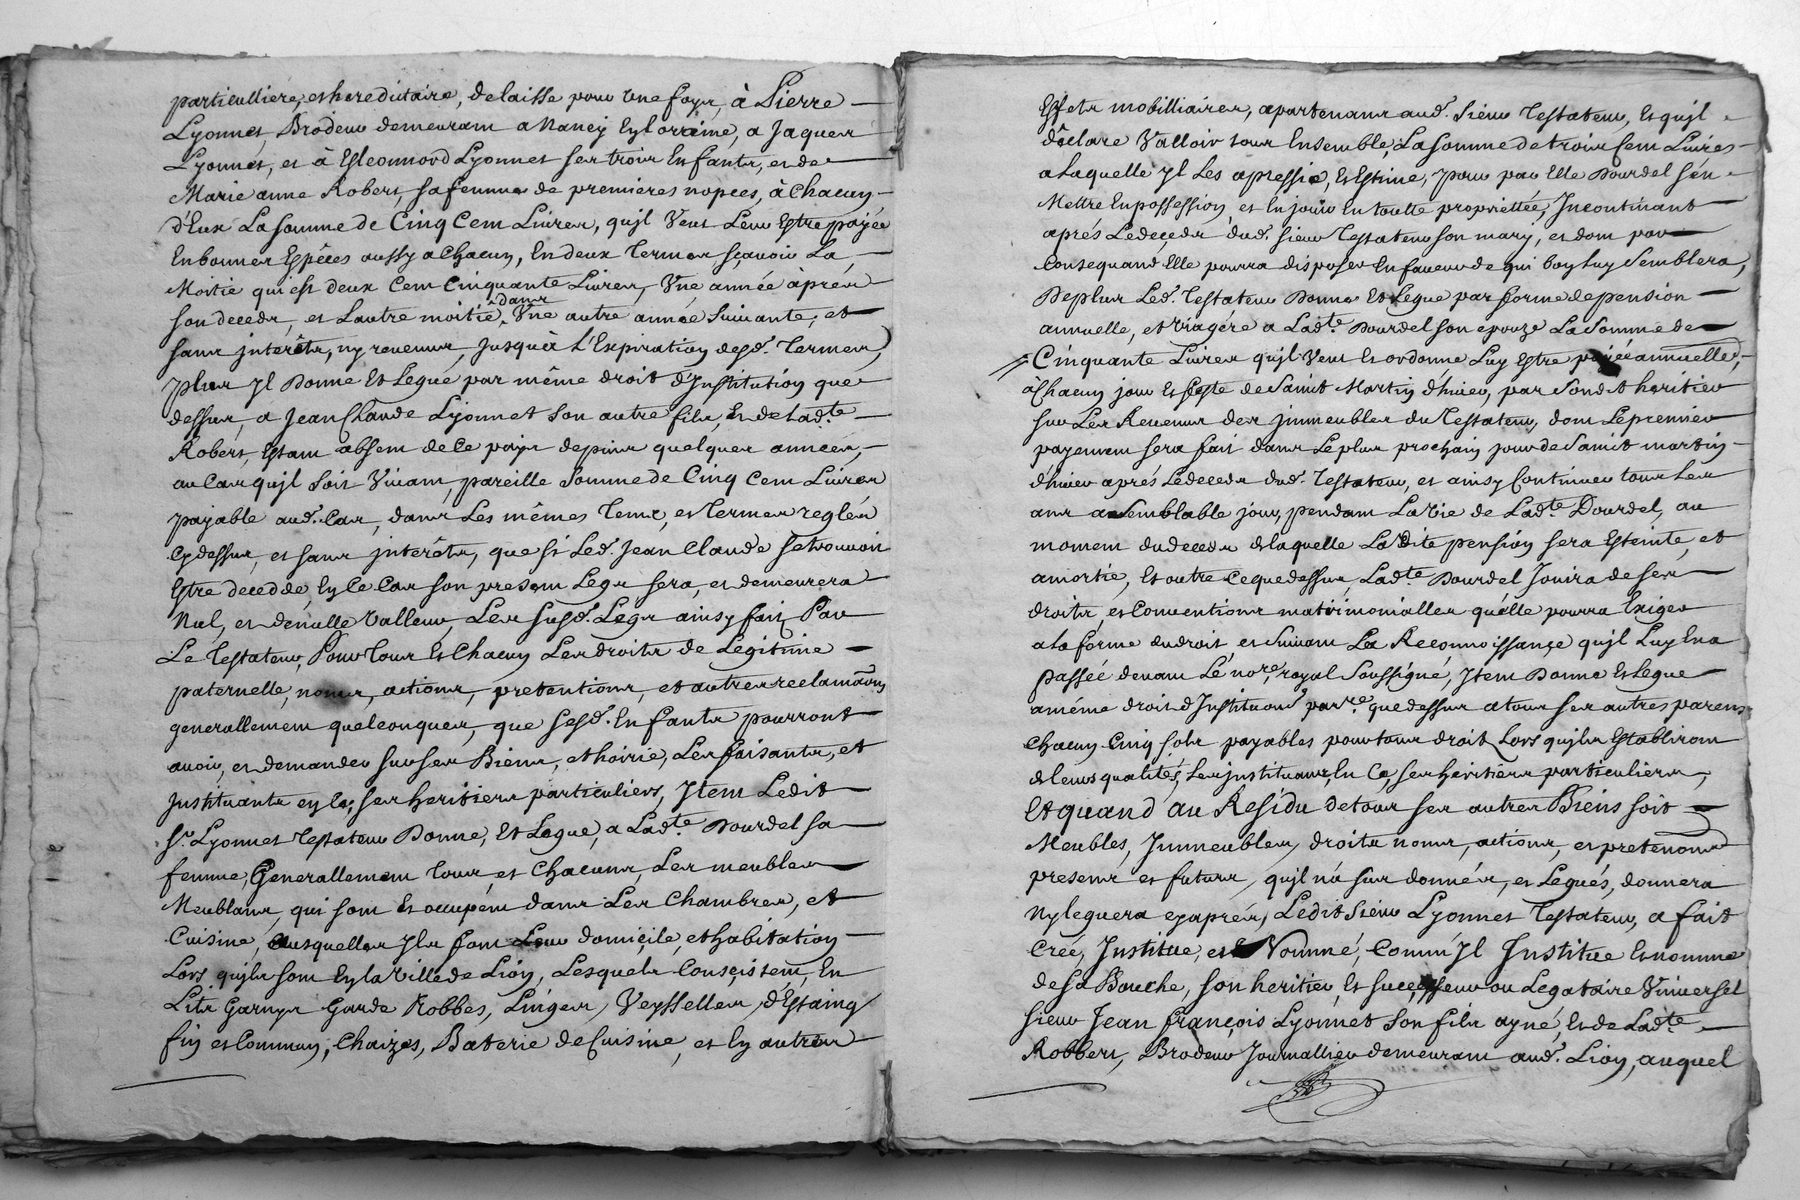 particulliere, et hereditaire, delaisse pour une foys, à Pierre
Lyonnet, Brodeur demeurant a Nancy En Lorraine, a Jaques
Lyonnet, et à Esleonnord Lyonnet ses trois Enfants, et de
Marie anne Robert, sa femme de premieres nopces, à Chacun
d'Eux La somme de Cinq Cent Livres, qu'jl Veut Leur Estre payée
En bonnes Espêces aussy a Chacun, En deux Termes sçavoir La
Moitie qui est deux Cent Cinquante Livres, Une année àpres
son decedz, et L'autre moitié dans Une autre année suivante, et
sans jnterêts, ny revenus, jusqu'à L'Expiration desd. Termes,
plus jl Donne Et Legue par même droit d'Institution que
dessus, a Jean Claude Lyonnet son autre fils, et de Ladte
Robert, Estant absent de Ce pays depuis quelques années,
au Cas qu'jl soit Vivant, pareille somme de Cinq Cent Livres
payable aud. Cas, dans Les mêmes Temps, et Termes reglés
Cy dessus, et sans jnterêts, que si Led. Jean Claude se trouvoit
Estre decedde, En Ce Cas son present Legs sera, et demeurera
Nul, et de nulle Valleur, Les susd. Legs ainsy fait Par
Le Testateur, Pour Tous Et Chacun Les droits de Legitime
paternelle, noms, actions, pretentions, et autres reclamaôns
generallement quelconques, que sesd. Enfants pourront
avoir, et demander sur ses Biens, et hoirie, Les faisants, et
Jnstituants en Ce, ses heritiers particuliers, Jtem Ledit
Sr. Lyonnet Testateur Donne, Et Legue, a Ladte. Dourdel sa
femme, Generallement Tous et Chacuns, Les meubles
Meublans, qui sont Et occupent dans Les Chambres, et
Cuisine, ausquelles jls font Leur domiçile, et habitation
Lors qu'jls sont En la Ville de Lion, Lesquels Consçistent, En
Lits Garnys Garde Robbes, Linges, Veysselles, d'Estaing
fin et Commun, Chaizes, Baterie de Cuisine, et En autres
Effets mobilliaires, apartenant aud. Sieur Testateur, Et qu'jl
déclare Valloir tous Ensemble, La somme de trois Cent Livres
a Laquelle jl Les apressie, Et Estime, pour par Elle Dourdel s'en
Mettre En possession, et En jouir En toutte propriettée, Incontinant
aprés Le decedz dud. sieur Testateur son mary, et dont par
Consequand Elle pourra disposer En faveur de qui bon Luy semblera,
De plus Led. Testateur Donne Et Legue par forme de pension
annuelle, et Viagére a Ladte. Dourdel son epouze La somme de
Cinquante Livres qu'jl Veut Et ordonne Luy Estre payée annuellet,
à Chacun jour Et feste de Saint Martin d'hiver, par Son dit heritier
sur Les Revenus des jmmeubles du Testateur, dont Le premier
payement sera fait dans Le plus prochain jour de Saint martin
d'hiver aprés Le decedz dud. Testateur, et ainsy Continuer tous Les
ans a semblable jour, pendant La Vie de Ladte Dourdel, au
moment du decedz de laquelle La dite pension sera Esteinte, et
amortie, Et outre Ce que dessus, Ladte. Dourdel Jouira de ses
droits, et Conventions matrimonialles qu'elle pourra Exiger
a la forme du droit et suivant La Reconnoissançe qu'jl Luy En a
passée devant Le nore. royal Soussigné, Jtem Donne et Legue
a même droit d'Instituôn parre. que dessus a tous ses autres parens
Chacun Cinq sols payables pour tous droit Lors qu'jls Establiront
de leurs qualités, Les jnstituant, En Ce, ses heritiers particuliers,
Et quand au Residu de tous ses autres Biens soit
Meubles, Jmmeubles, droits noms, actions, et pretentions
presens et futurs, qu'jl n'a sus donnés, et Legués, donnera
Ny leguera cy aprés, Ledit Sieur Lyonnet Testateur, a fait
Créé, Jnstitue, et Nommé, Comm'jl Institue Et nomme
de sa Bouche, son heritier, Et successeur ou Legataire Universel
sieur Jean François Lyonnet son fils ayné, Et de Ladte.
Robbert, Brodeur Journallier demeurant aud. Lion, auquel